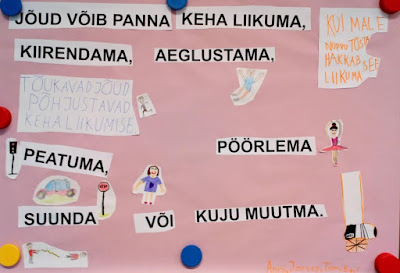 JÕUD VÕIB PANNA KEHA LIIKUMA,
KUI MALE
NUPPU TÕSTA
HAKKAB SEE
LIIKUMA
KIIRENDAMA, AEGLUSTAMA,
TÕUKAVAD JÕUD
PÕHJUSTAVAD
KEHA LIIKUMISE
PEATUMA, PÖÖRLEMA
STOP
SUUNDA VÕI KUJU MUUTMA.